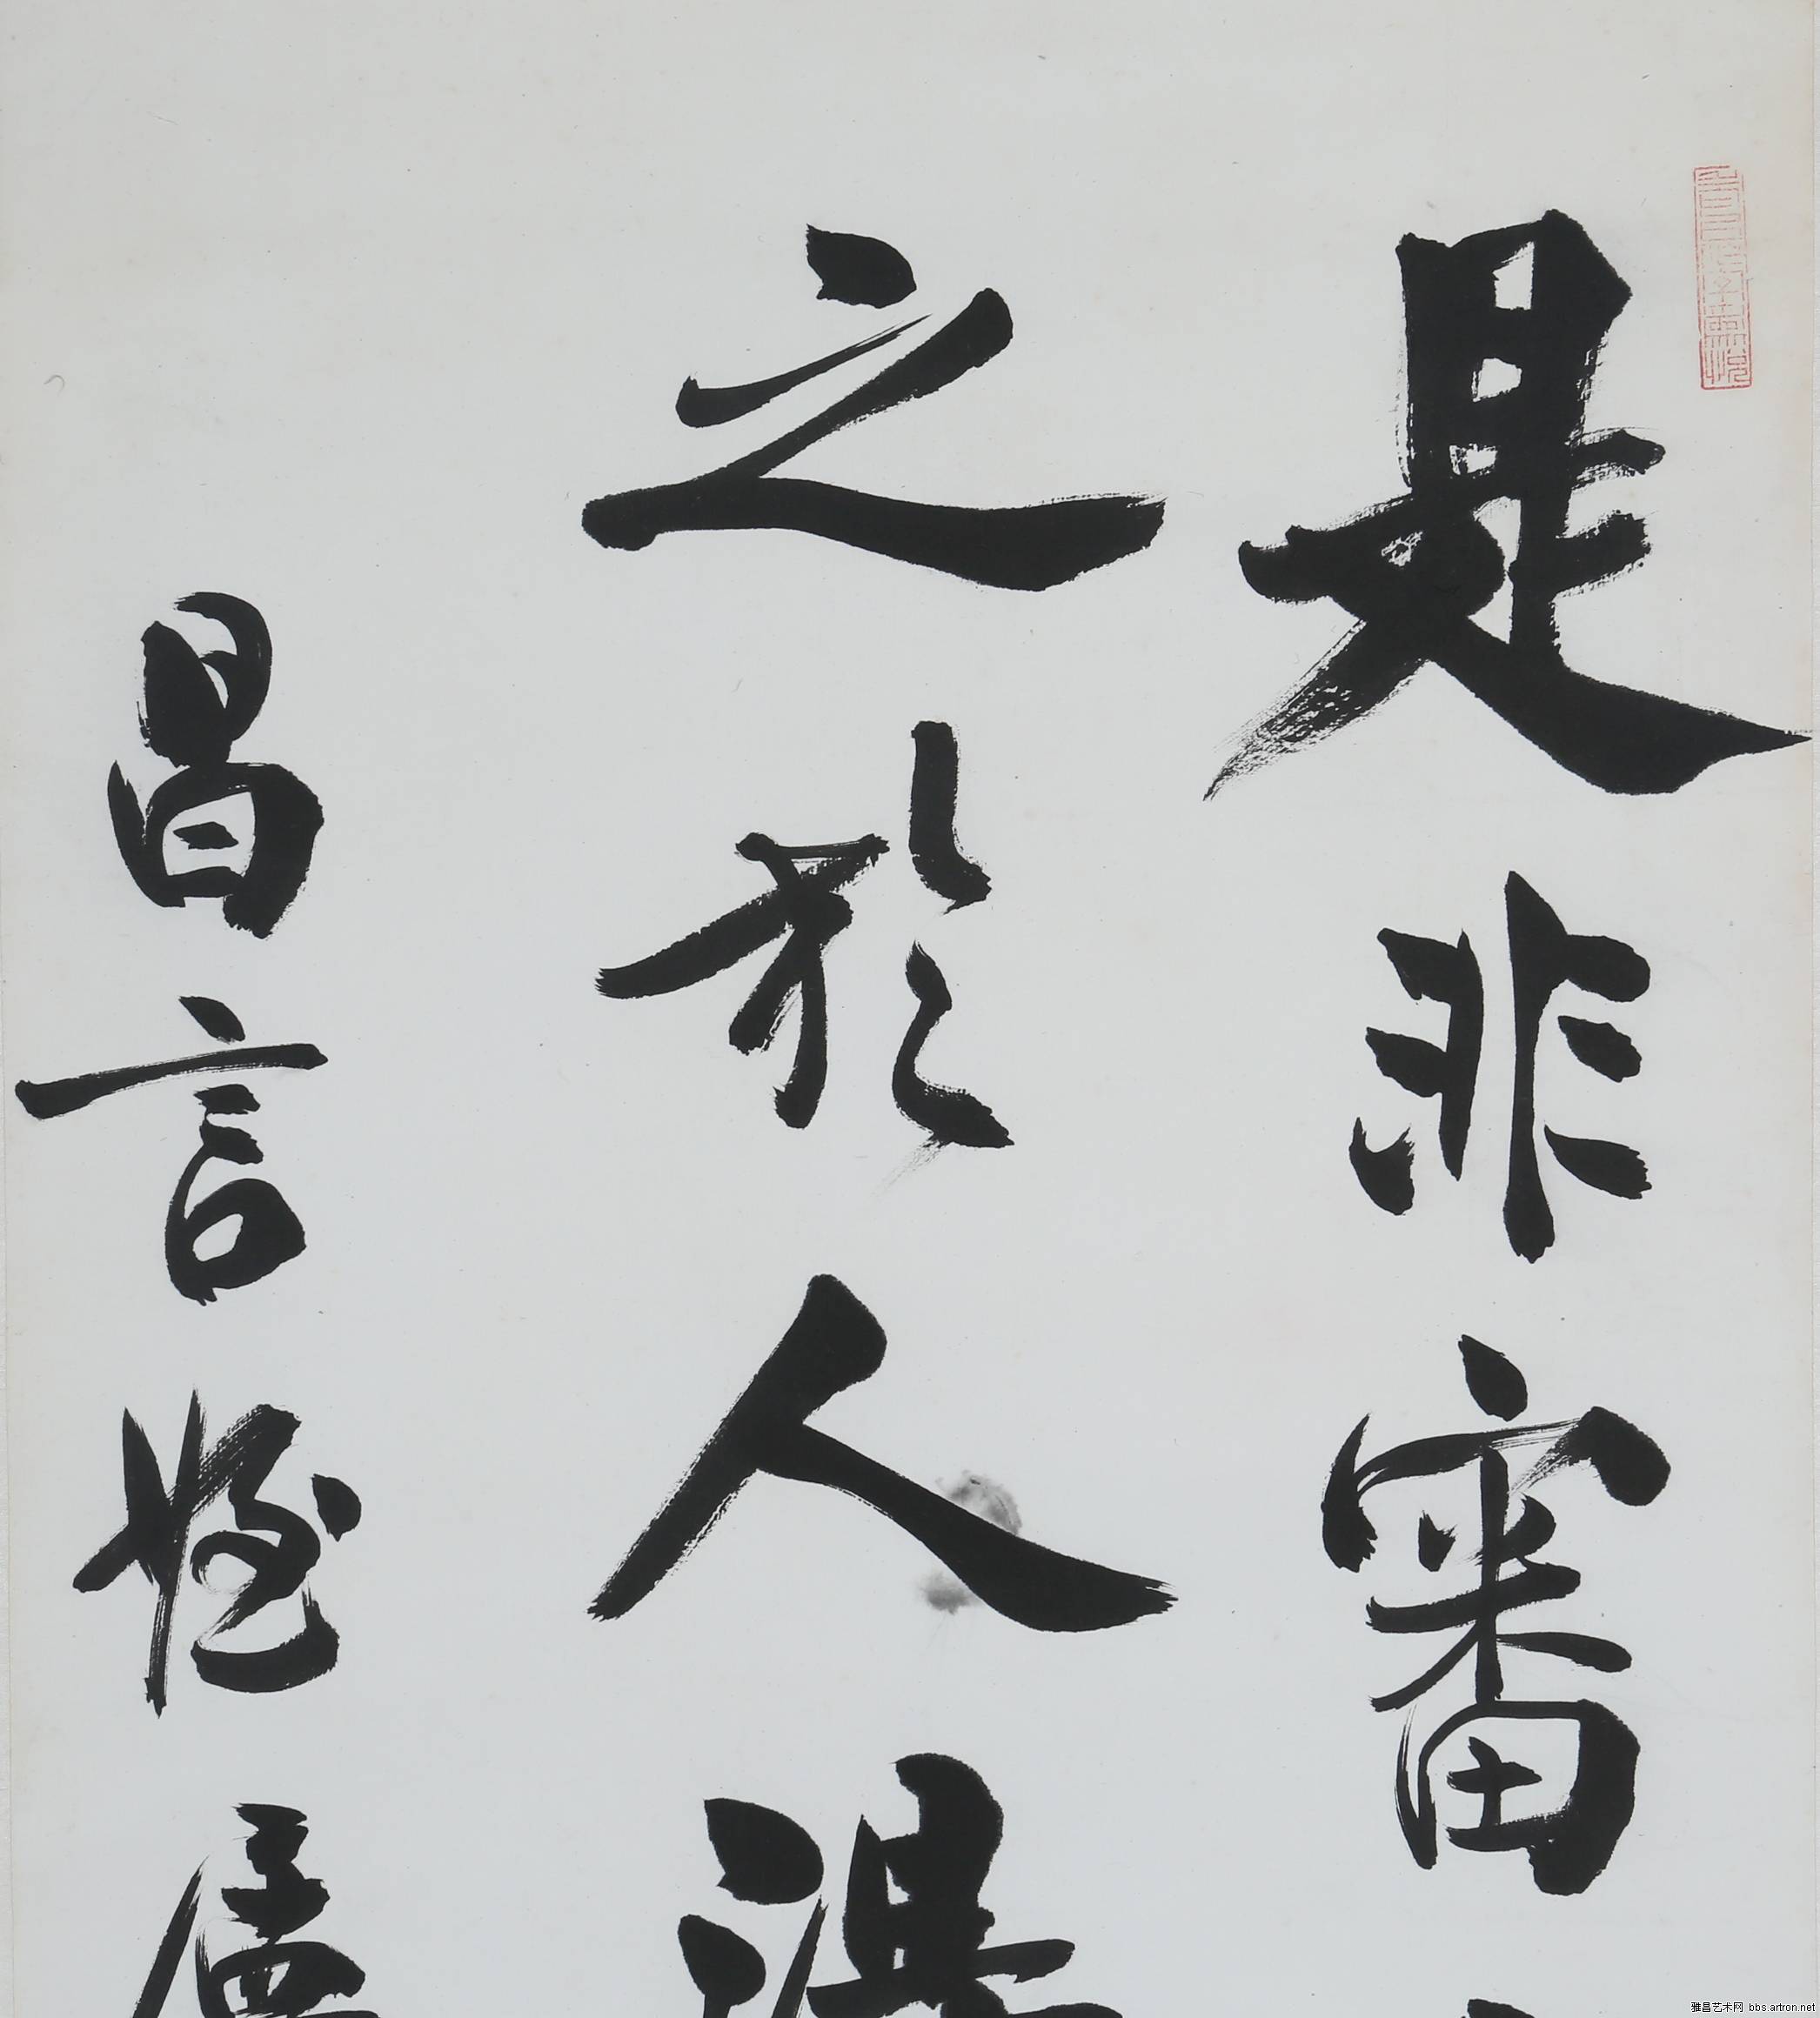 是非審
之於人得
昌言
雅昌艺术网 bbs.artron.net